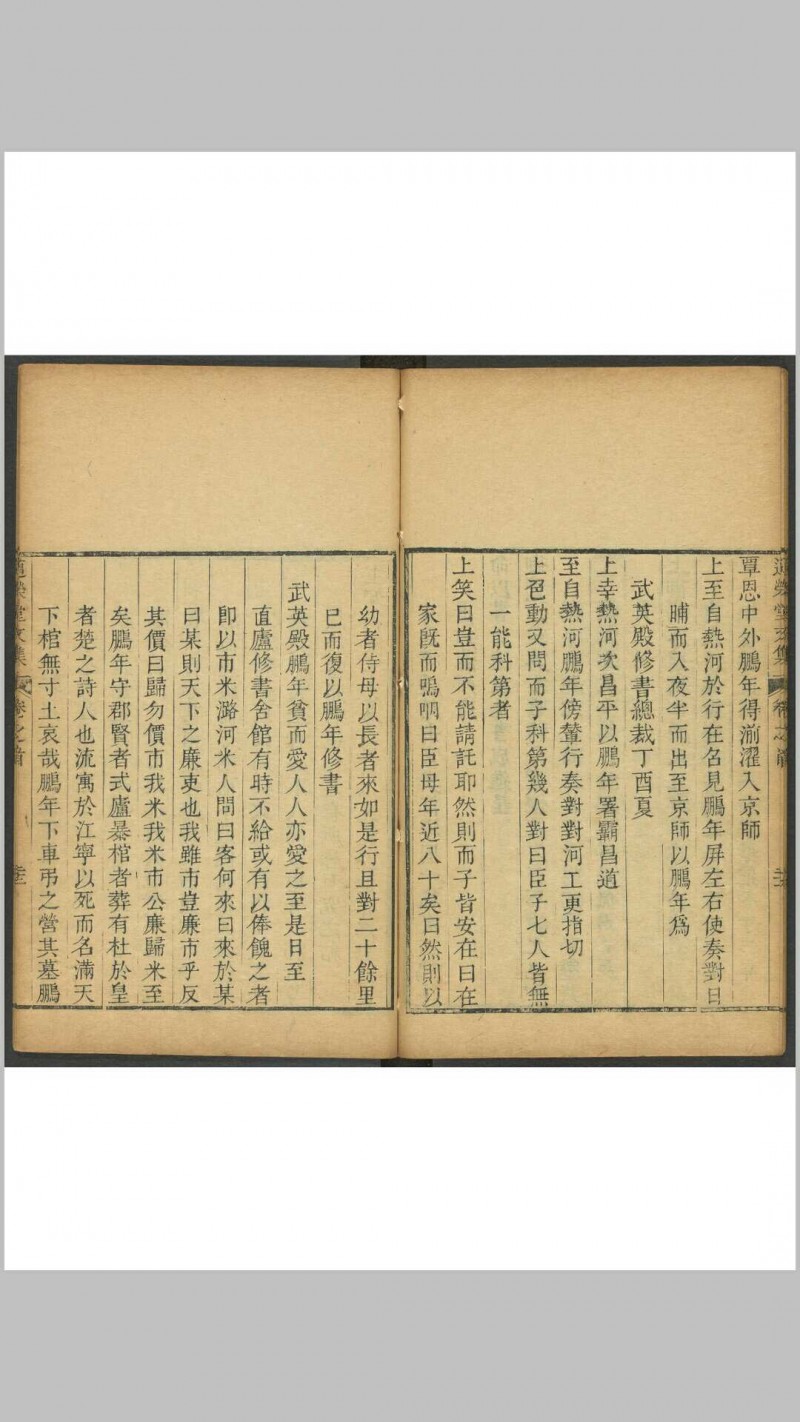 覃恩中外鵬年得湔濯入京師
上至自熱河於行在名見鵬年屏左右使奏對日
晡而入夜半而出至京師以鵬年爲
武英殿修書總裁丁酉夏
上幸熱河次昌平以鵬年署霸昌道
至自熱河鵬年傍輦行奏對對河工更指切
上色動又問而子科第幾人對曰臣子七人皆無
一能科第者
上笑曰豈而不能請託耶然則而子皆安在曰在
家旣而嗚咽曰臣母年近八十矣曰然則以
幼者侍母以長者來如是行且對二十餘里
已而復以鵬年修書
武英殿鵬年貧而愛人人亦愛之至是日至
直廬修書舍館有時不給或有以俸餽之者
卽以市米潞河米人問曰客何來曰來於某
曰某則天下之廉吏也我雖市豈廉市乎反
其價曰歸勿價市我米我米市公廉歸米至
矣鵬年守郡賢者式廬暴棺者葬有杜於皇
者楚之詩人也流寓於江寧以死而名滿天
下棺無寸土哀哉鵬年下車弔之營其墓鵬